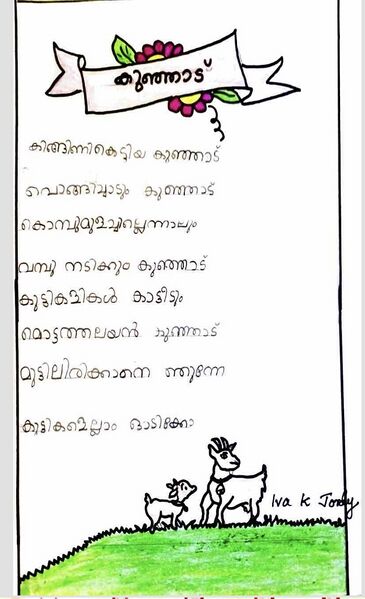 കുഞ്ഞാട്
കിങ്ങിണികെട്ടിയ കുഞ്ഞാട്
പൊങ്ങിച്ചാടും കുഞ്ഞാട്
കൊമ്പുമുളച്ചില്ലെന്നാലും
വമ്പു നടിക്കും കുഞ്ഞാട്
കുട്ടികളികൾ കാട്ടീടും
മൊട്ടത്തലയൻ കുഞ്ഞാട്
മുട്ടിലിരിക്കാനെ ഞുന്നേ
കുട്ടികളെല്ലാം ഓടിക്കോ
Iva K Tomy